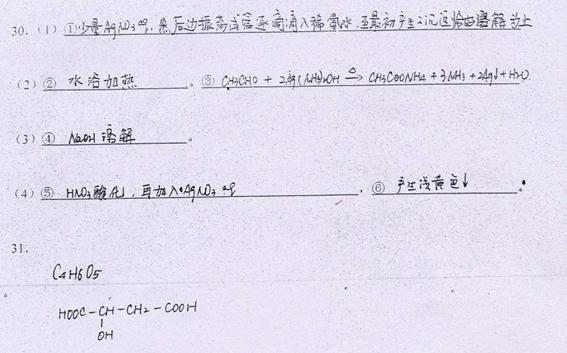 30. (1) ①少量AgNO₃溶液, 然后边振荡试管边逐滴滴入稀氨水,至最初产生的沉淀恰好溶解为止
(2) ② 水浴加热 。③ CH₃CHO + 2Ag(NH₃)₂OH →△ CH₃COONH₄ + 3NH₃ + 2Ag↓ + H₂O
(3) ④ NaOH 溶解 。
(4) ⑤ HNO₃酸化,再加入AgNO₃ ,⑥ 产生浅黄色↓ 。
31.
C₄H₆O₅
HOOC-CH-CH₂-COOH
OH